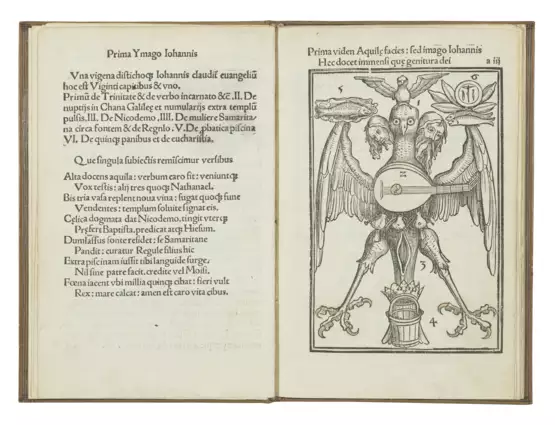 Prima Ymago Iohannis
Vna vigena distichoqꝫ Iohannis claudit̃ euangeliũ
hoc est Viginti capitibus & vno.
Primũ de Trinitate & de verbo incarnato &c̃ .II. De
nuptijs in Chana Galileę et numularijs extra templũ
pulsis.III. De Nicodemo .IIII. De muliere Samarita-
na circa fontem & de Regulo .V. De pbatica piscina
VI. De quinqꝫ panibus et de eucharistia.
Que singula subiectis reminiscimur versibus
Alta docens aquila: verbum caro fit: veniuntqꝫ
Vox testis: alij tres quoqꝫ Nathanael.
Bis tria vasa replent noua vina: fugat quoqꝫ fune
Vendentes: templum soluite signat eis.
Cęlica dogmata dat Nicodemo, tingit vterqꝫ
Pręfert Baptista, predicat atqꝫ Hiesum.
fonte residet: se Samaritane
Pandit: curatur Regule filius hic
Extra piscinam iussit tibi languide surge,
Nil sine patre facit, credite vel Moisi,
Fœna iacent vbi millia quinqꝫ cibat: fieri vult
Rex: mare calcat: amen est caro vita cibus.
Prima viden Aquilę facies: sed imago Iohannis
Hec docet immensi quę genitura dei
a iij
5
6
1
2
3
4